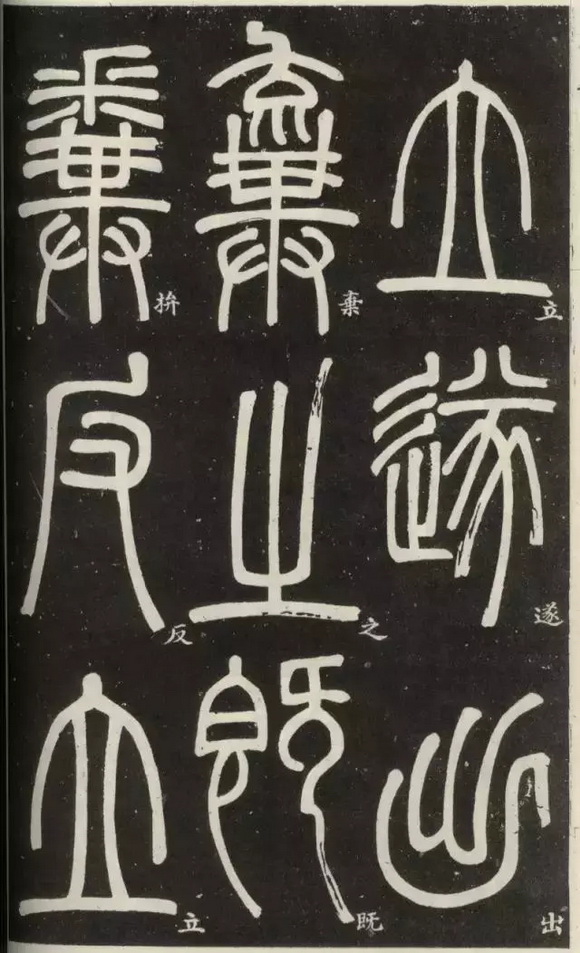 立遂出
棄之既
拚反立